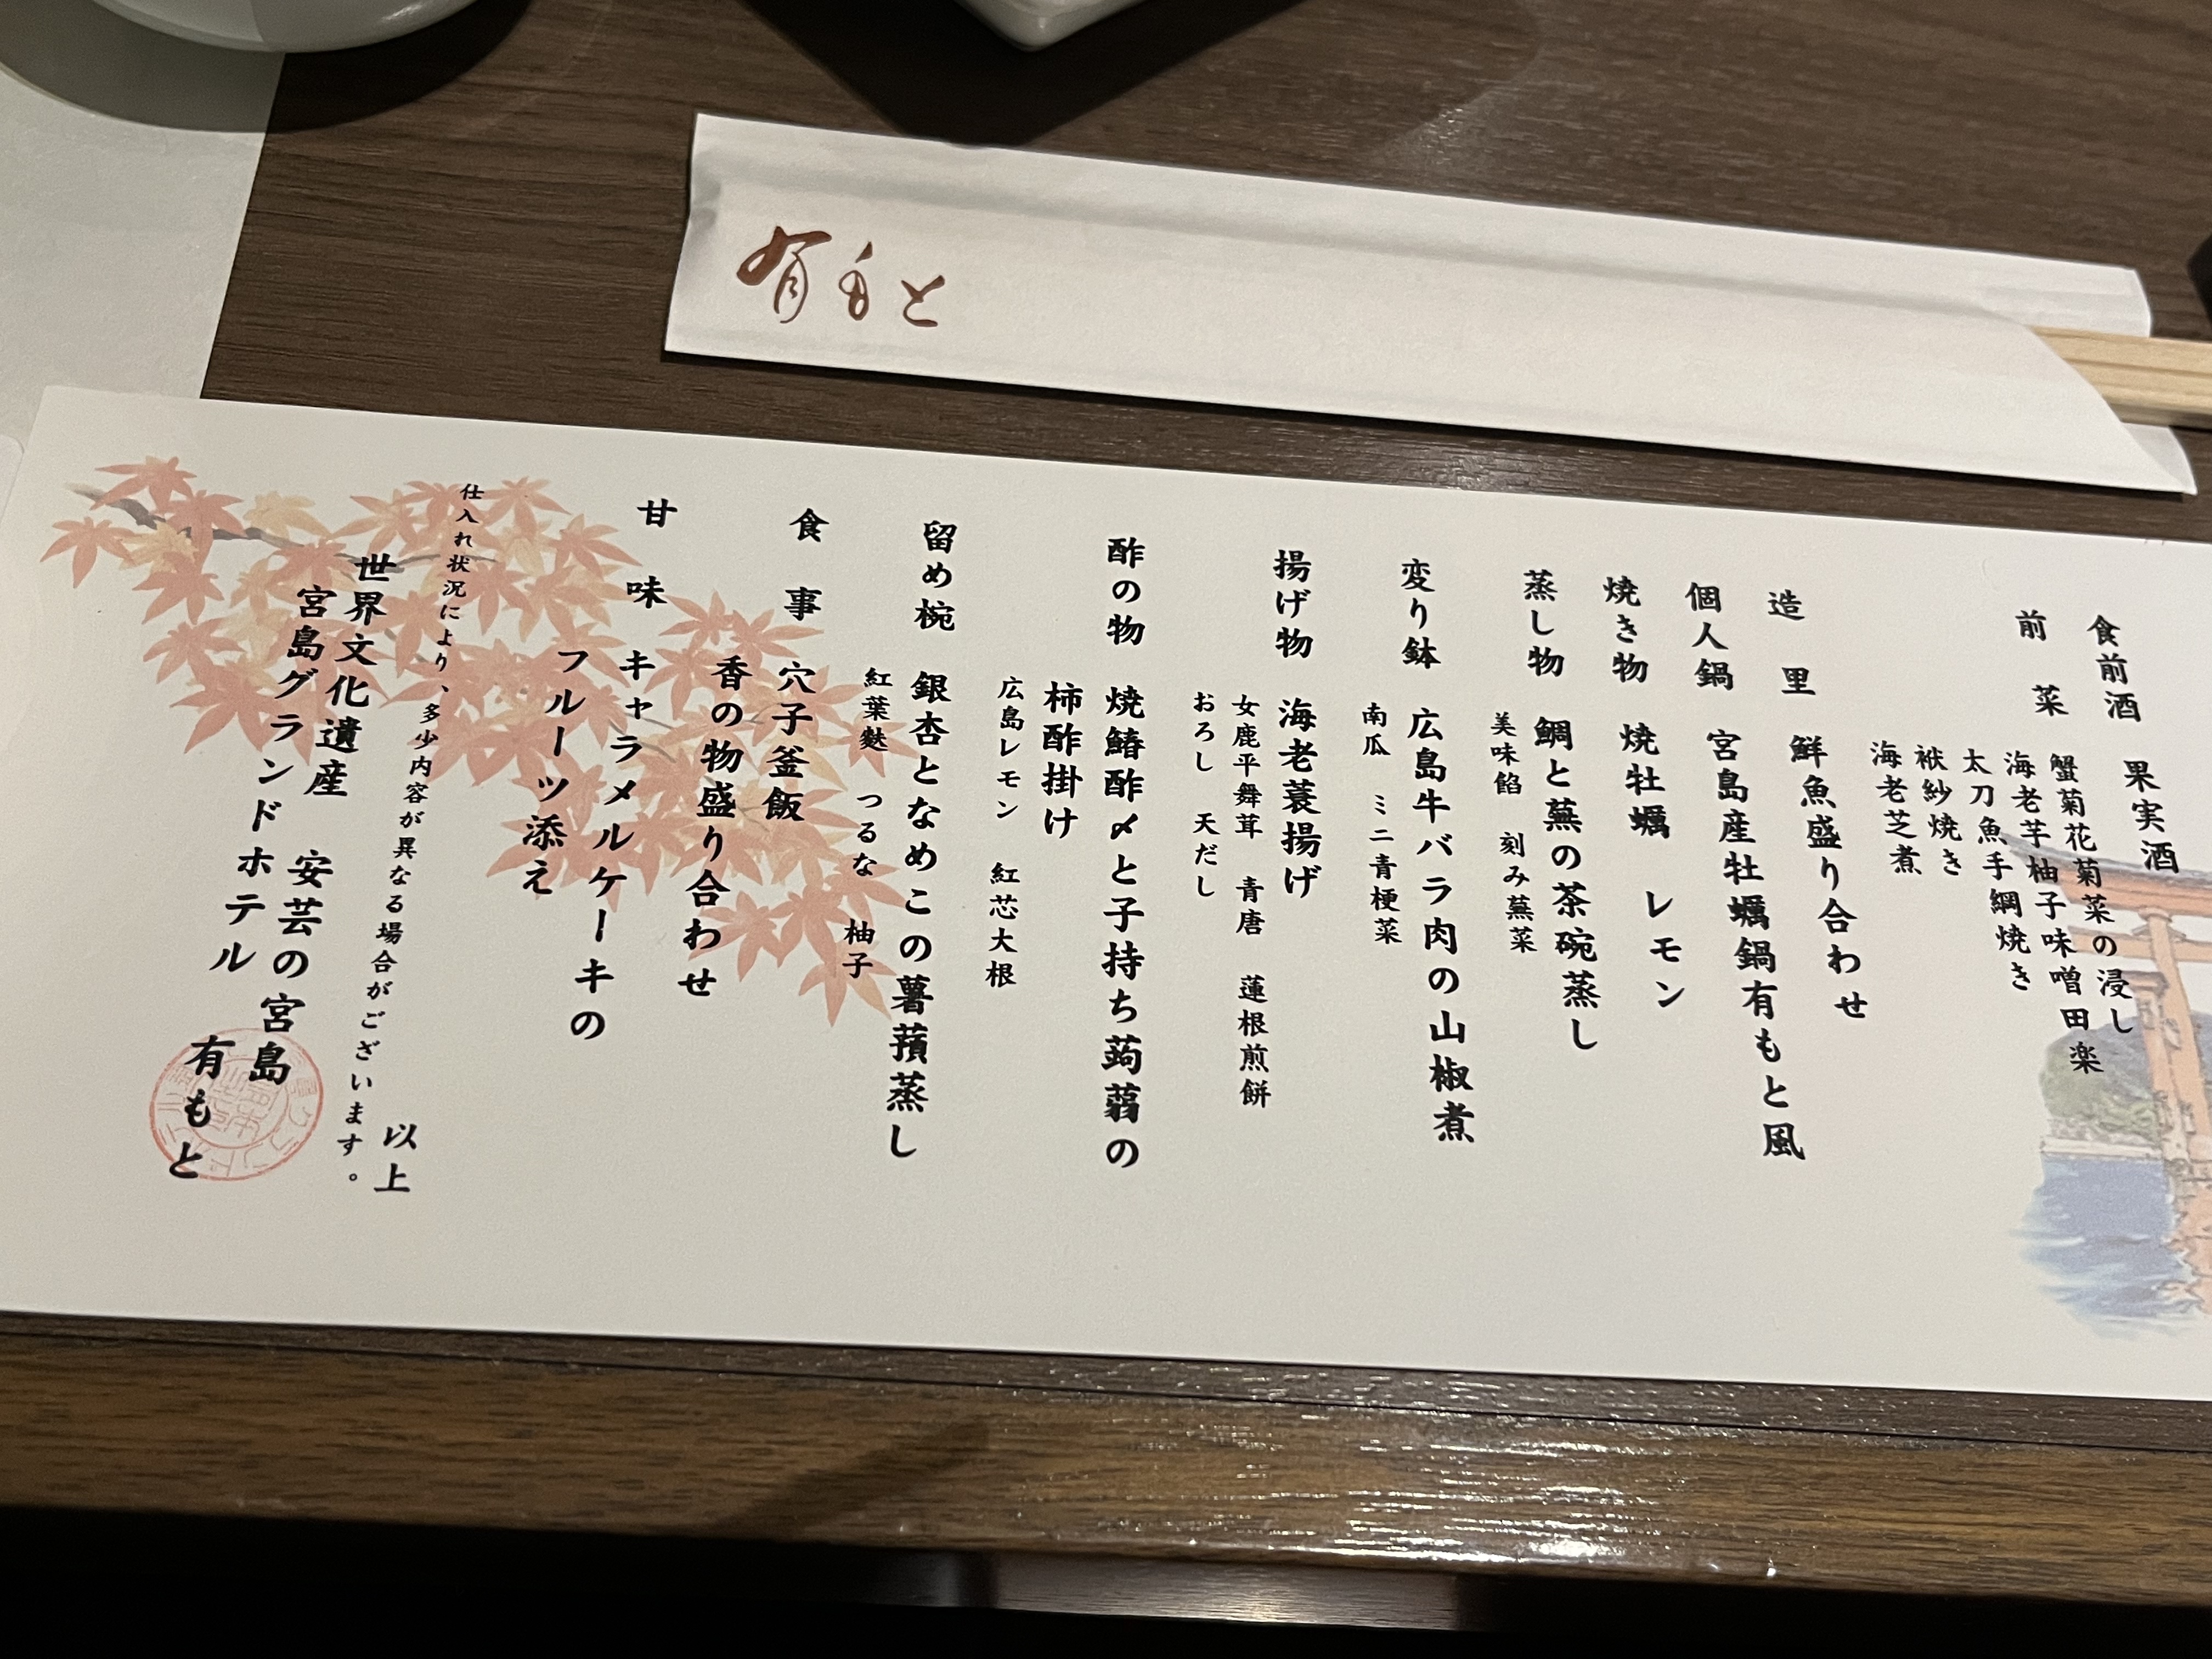 有もと
食前酒　果実酒
前　菜　蟹菊花菊菜の浸し
海老芋柚子味噌田楽
太刀魚手綱焼き
袱紗焼き
海老芝煮
造　里　鮮魚盛り合わせ
個人鍋　宮島産牡蠣鍋有もと風
焼き物　焼牡蠣　レモン
蒸し物　鯛と蕪の茶碗蒸し
美味餡　刻み蕪菜
変り鉢　広島牛バラ肉の山椒煮
南瓜　ミニ青梗菜
揚げ物　海老蓑揚げ
女鹿平舞茸　青唐　蓮根煎餅
おろし　天だし
酢の物　焼鰆酢〆と子持ち蒟蒻の
柿酢掛け
広島レモン　紅芯大根
留め椀　銀杏となめこの薯蕷蒸し
紅葉麩　つるな　柚子
食　事　穴子釜飯
香の物盛り合わせ
甘　味　キャラメルケーキの
フルーツ添え
以上
仕入れ状況により、多少内容が異なる場合がございます。
世界文化遺産　安芸の宮島
宮島グランドホテル　有もと